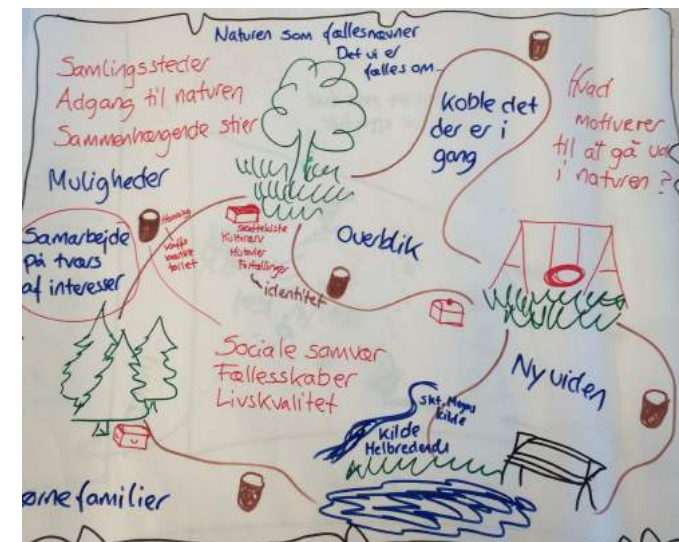 Naturen som fællesnævner
Det vi er
fælles om...
Samlingssteder
Adgang til naturen
Sammenhængende stier
Koble det
der er i
gang
Hvad
motiverer
til at gå ud
i naturen?
Muligheder
Samarbejde
på tværs
af interesser
Honning
toilet
Skattekiste
Kulturarv
Historier
Fortællinger
identitet
Overblik
Sociale samvær
Fællesskaber
Livskvalitet
Ny viden
Kilde
Kilde
Helbredende
ørnefamilier